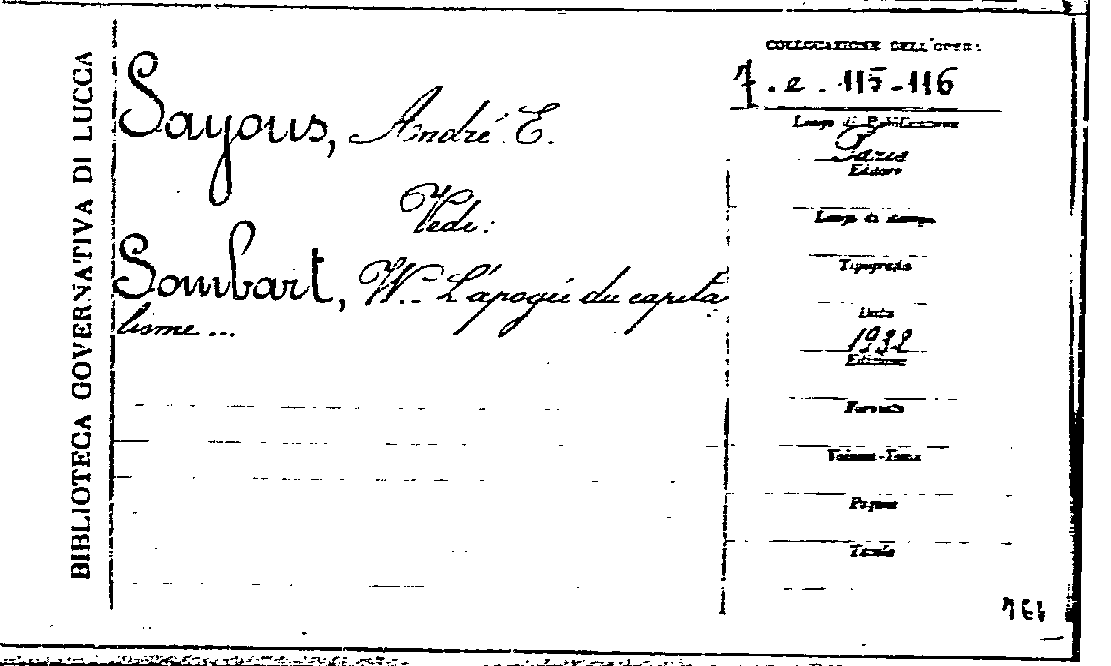 BIBLIOTECA GOVERNATIVA DI LUCCA
Sayous, André E.
Vedi:
Sombart, W. - L'apogée du capita
lisme ...
COLLOCAZIONE DELL'OPERA
7. e. 115-116
Luogo di Pubblicazione
Paris
Editore
Luogo di stampa
Tipografia
Data
1932
Edizione
Formato
Volume-Tomo
Pagine
Tavole